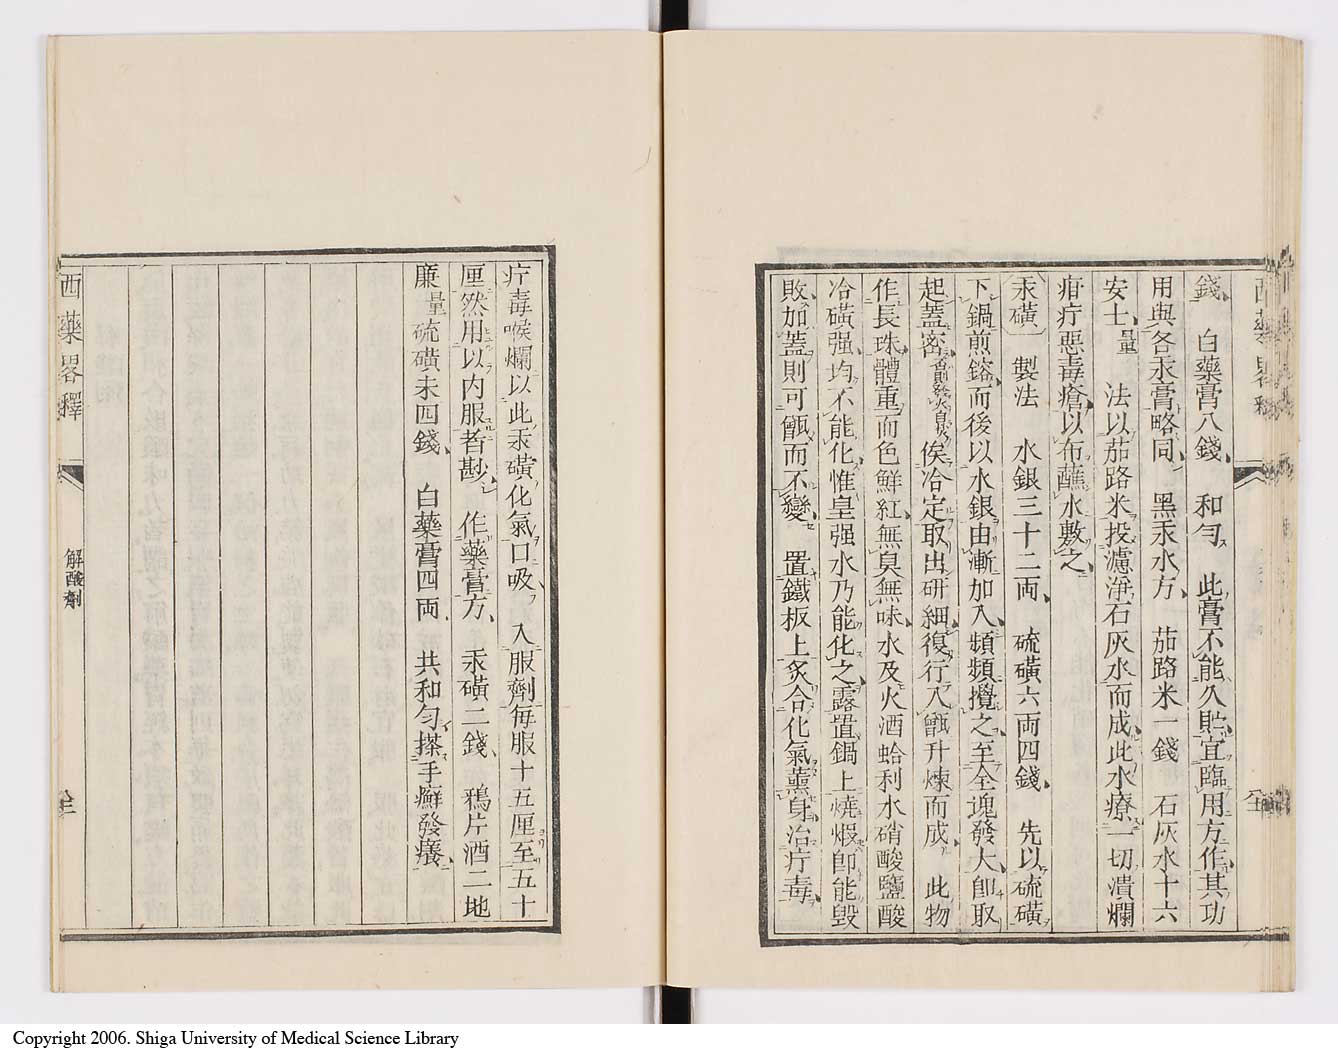 錢、白藥膏八錢、和勻、此膏不能久貯、宜臨用方作、其功
用與各汞膏略同、黑汞水方、茄路米一錢 石灰水十六
安士、量 法以茄路米投濾淨石灰水而成、此水療一切潰爛
疳疔惡毒瘡、以布蘸水敷之、
汞磺 製法 水銀三十二両、硫磺六両四錢、先以硫磺
下鍋煎鎔、而後以水銀由漸加入、頻頻攪之、至全塊發大、卽取
起蓋密、否則發火自焚 俟冷定取出硏細、復行入甑升煉而成、此物
作長珠、體重而色鮮紅、無臭無味、水及火酒蛤利水硝酸鹽酸
冾磺强、均不能化、惟皇强水乃能化之、露置鍋上燒煆卽能毀
敗、加蓋則可甑而不變、置鐵板上炙合化氣薰身、治疔毒、
西藥畧釋
疔毒喉爛、以此汞磺化氣口吸、入服劑每服十五厘至五十
厘、然用以內服者尠、作藥膏方、汞磺二錢、鴉片酒二地
廉、量 硫磺末四錢、白藥膏四両、共和勻、搽手癬發癢、
西藥畧釋
解酸劑